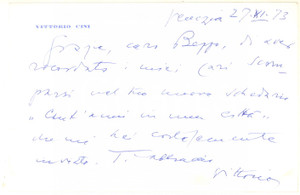 VITTORIO CINI
Venezia 27 XI. 73
Grazie, caro Beppi, di aver
ricordato i miei cari Scom
parsi nel tuo nuovo
"Cent'anni in una città"
che mi hai cortesemente
inviato. T'abbraccio
Vittorio